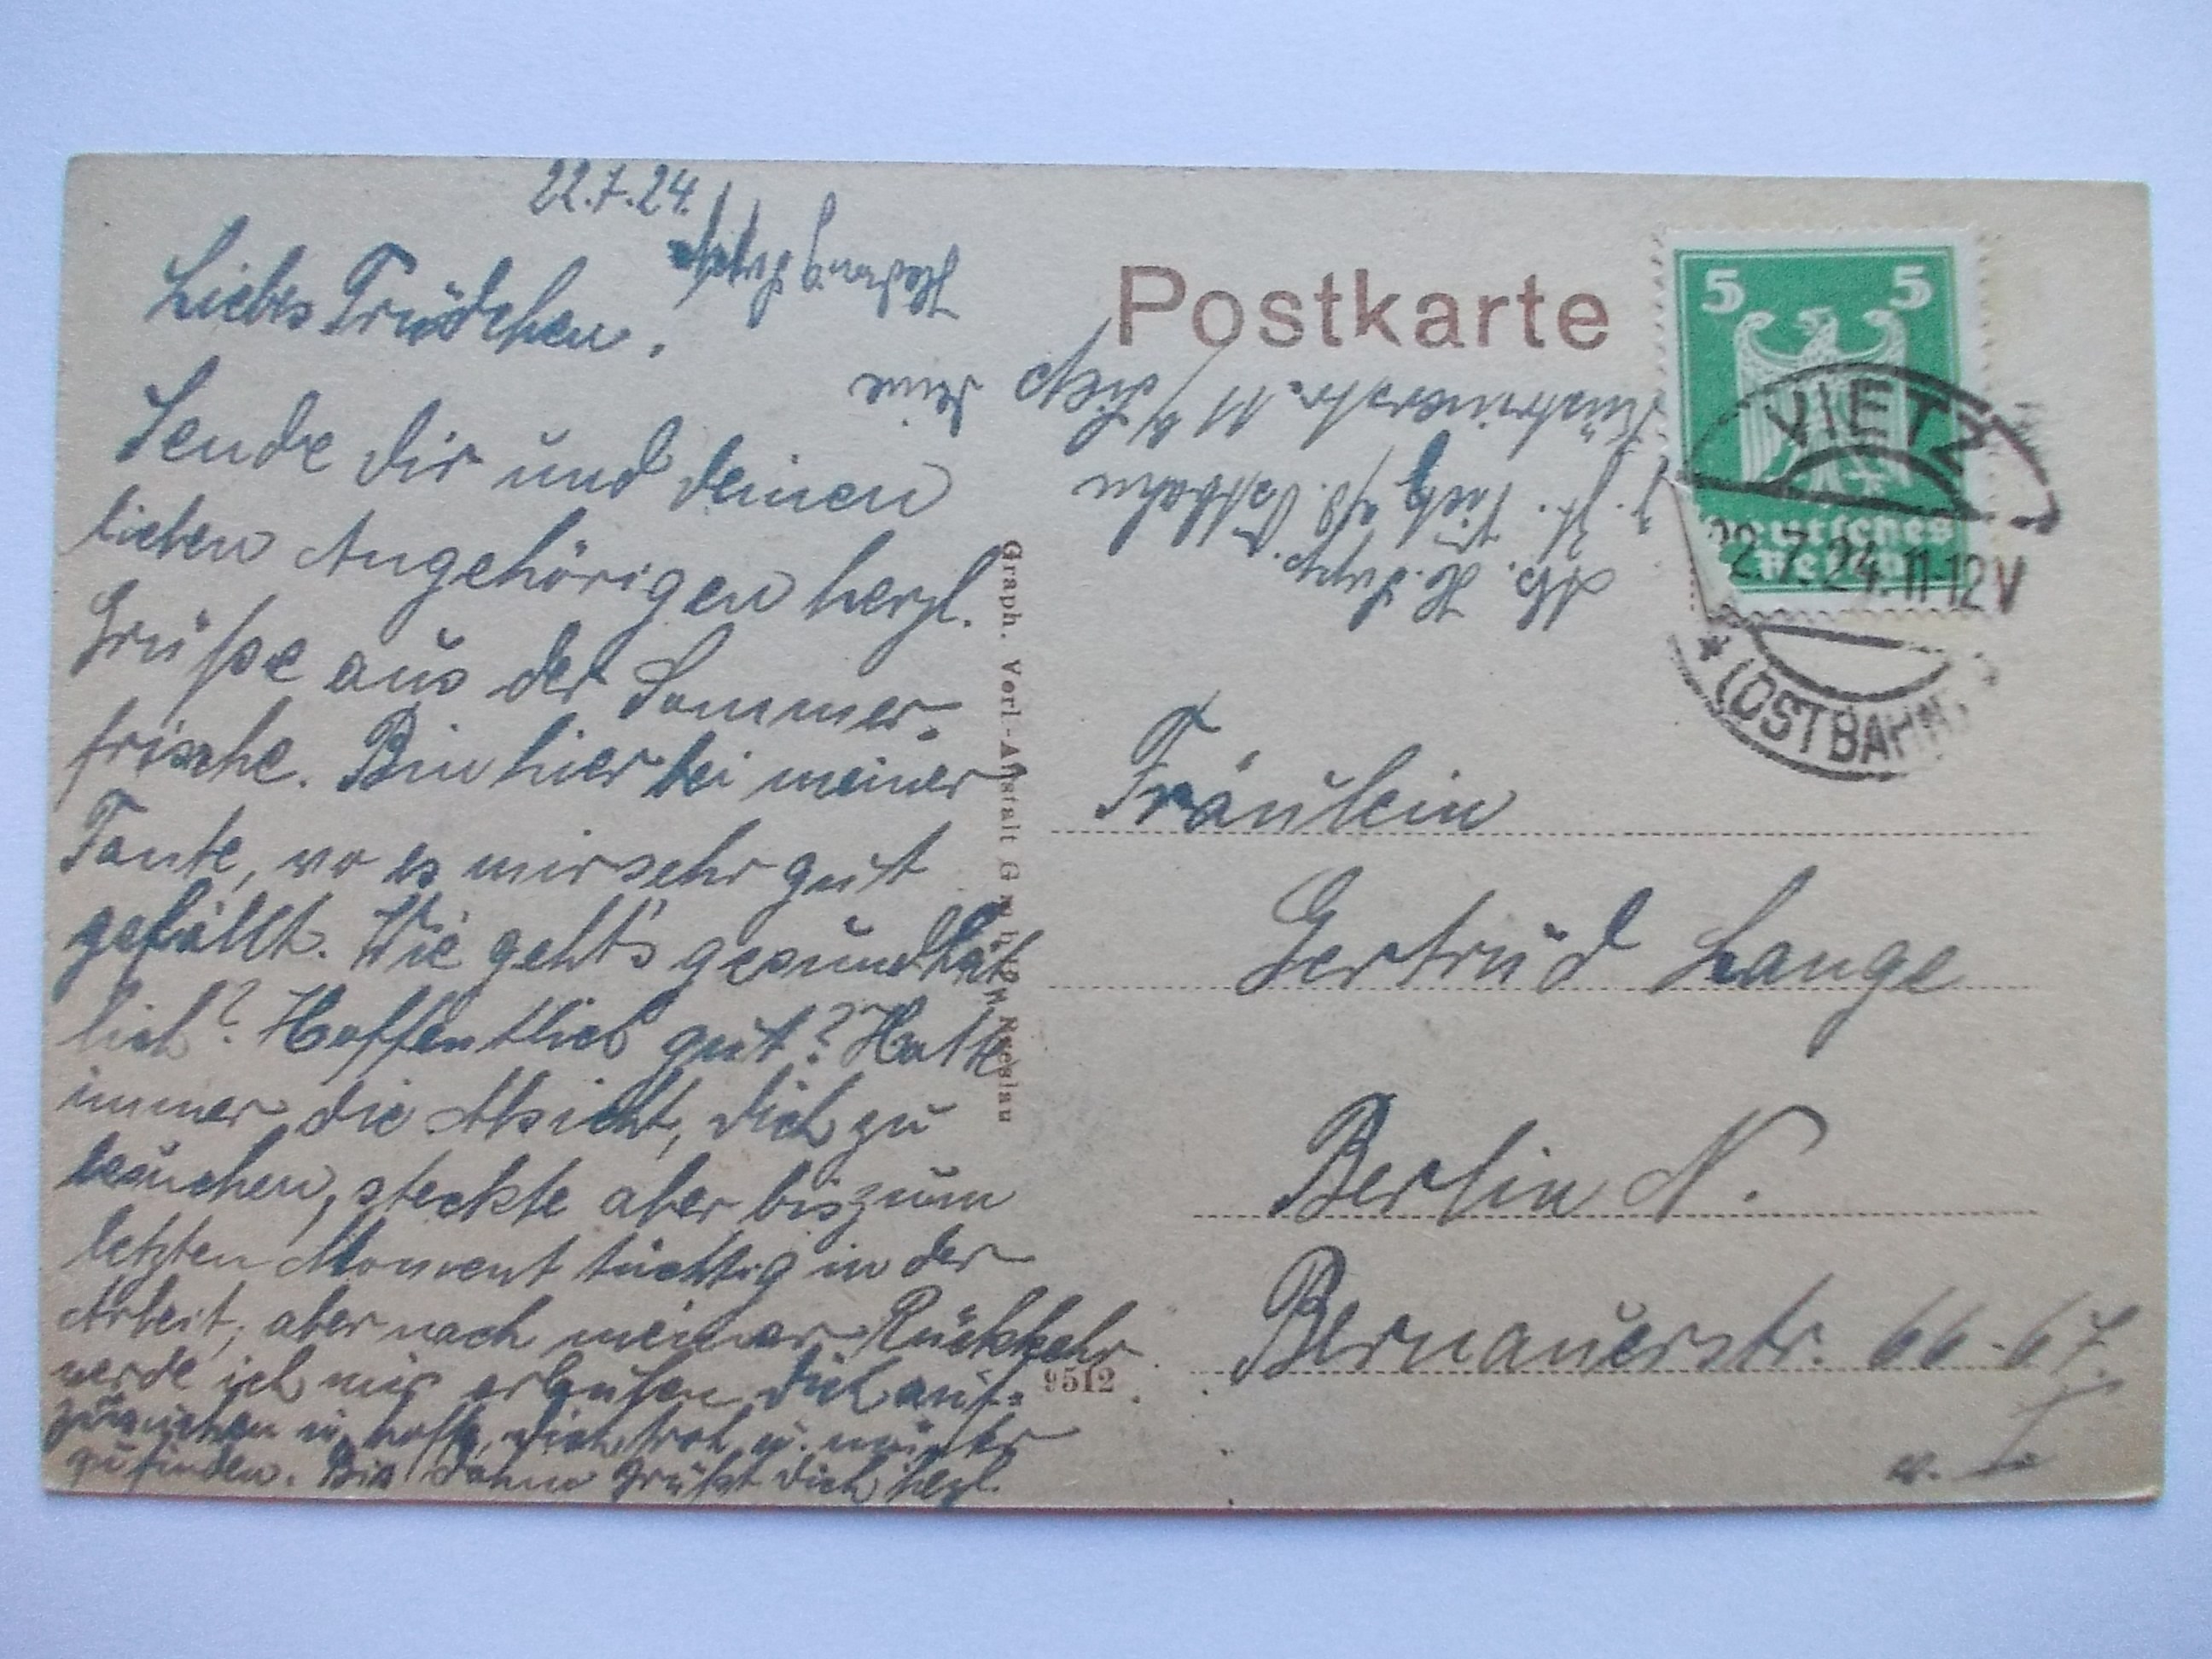 22.7.24.
Liebes Trudchen.
Sende dir und deinen
lieben Angehörigen herzl.
Grüße aus der Sommer-
frische. Bin hier bei meiner
Tante, wo es mir sehr gut
gefällt. Wie geht's gesundheit
lich? Hoffentlich gut? Hatte
immer die Absicht, dich zu
besuchen, steckte aber bis zum
letzten Moment tüchtig in der
Arbeit, aber nach meiner Rückkehr
werde ich mir erlauben dich auf-
zusuchen u. hoffe, dich froh u. munter
zu finden. Bis dahin grüßt dich herzl.
deine
Hedwig
Graph. Verl.-Anstalt G m b H Breslau
9512
Postkarte
5 5
Deutsches
Reich
VIETZ
22.7.24.11-12V
* (OSTBAHN) *
Ab. H.
z. Zt. Vietz a/d. Ostbahn
Küstrinerstr. 11 b/
Fräulein
Gertrud Lange
Berlin N.
Bernauerstr. 66-67.